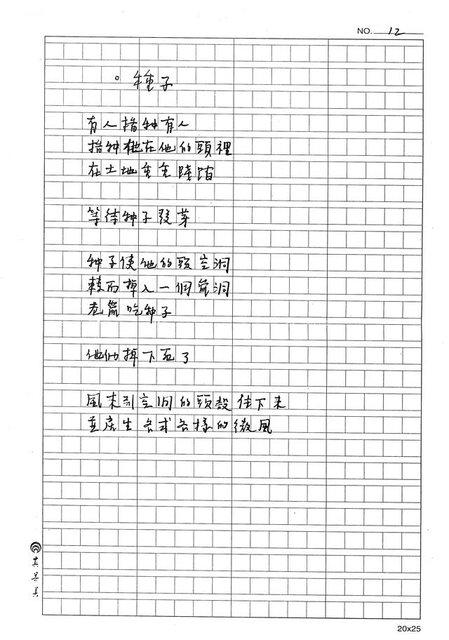 NO. 12
。種子
有人措种有人
措种牠在他的頭裡
在土地
等待种子發芽
种子使他的頭空洞
轉而掉入一個窟洞
老鼠吃种子
他們掉下去了
風來到空洞的頭殼住下來
並產生各式各樣的微風
20x25